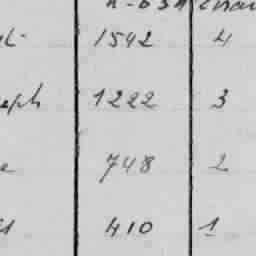 1542 4
eph 1222 3
e 748 2
410 1